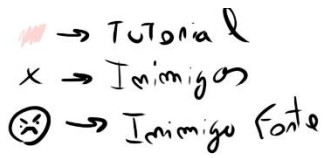 → Tutorial
x → Inimigos
→ Inimigo Forte